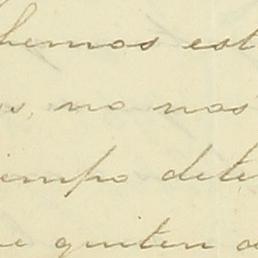 hemos est
s, no nos
iempo dete
ue quiten a